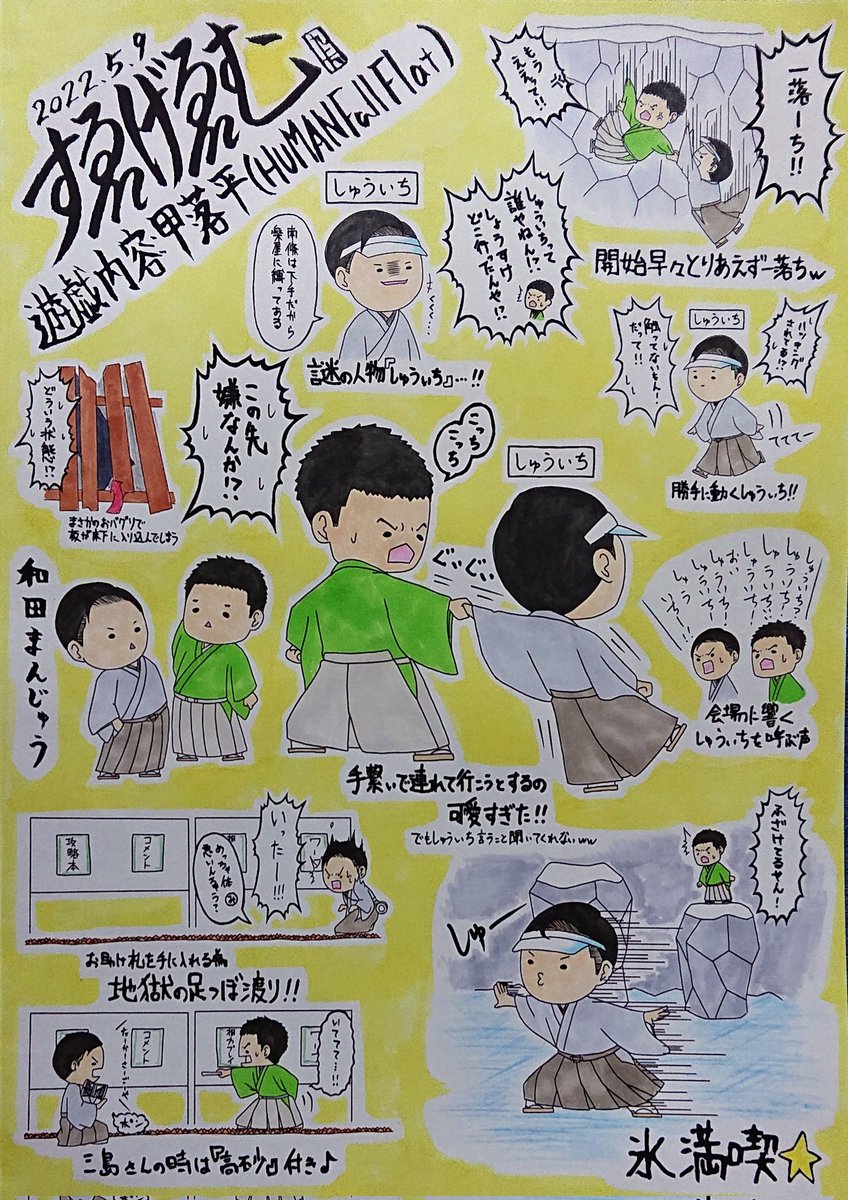 2022.5.9
すゑげゑむ
遊戯内容甲落平(HUMANFallFlat)
もう
ええって!!
一落ーち!!
開始早々とりあえず一落ちw
しゅういち
南條は下手だから
楽屋に縛ってある
謎の人物『しゅういち』…!!
しゅういちって
誰やねん!?
しょうすけ
どこ行ったんや!?
しゅういち
ハッキング
されてる!?
触ってないもん!
だって!!
てててー
勝手に動くしゅういち!!
どういう状態!?
まさかのおバグリで
板が床下に入り込んでしまう
この先
嫌なんか!?
こっち
こっち
しゅういち
ぐいぐい
手繋いで連れて行こうとするの
可愛すぎた!!
でもしゅういち言うこと聞いてくれないww
しゅういち?
しゅういち!
しゅういち!
おい
しゅういち!
しゅう
いちー!
会場に響く
しゅういちを呼ぶ声
和田まんじゅう
攻略本
コメント
いったー!!!
めっちゃ体
悪いんちゃう?
お助け札を手に入れる為
地獄の足つぼ渡り!!
コメント
いててて…!!!
三島さんの時は『高砂』付き♪
ふざけてるやん!
しゅー
氷満喫☆